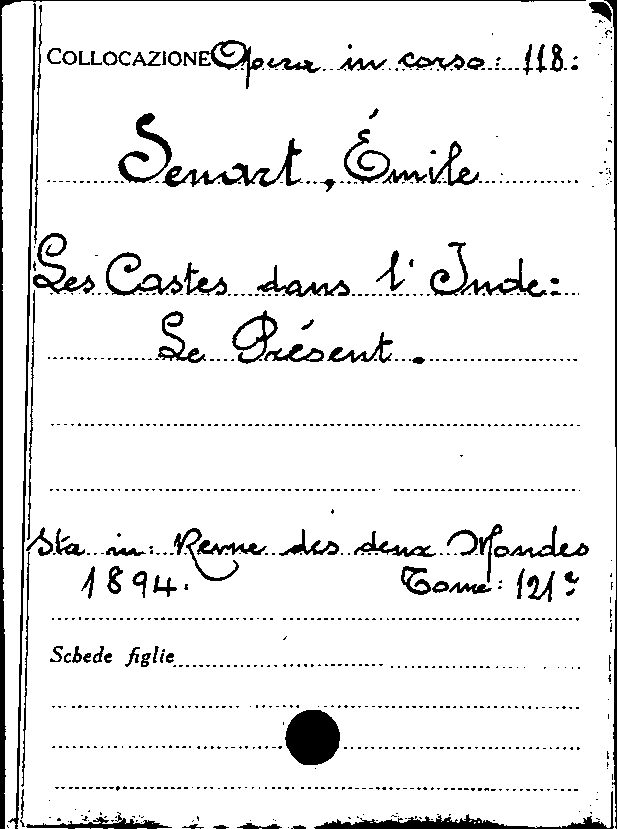 COLLOCAZIONE Opera in corso: 118:
Senart, Émile
Les Castes dans l' Inde:
Le Présent.
Sta in: Revue des deux Mondes
1894. Tome: 121e
Schede figlie